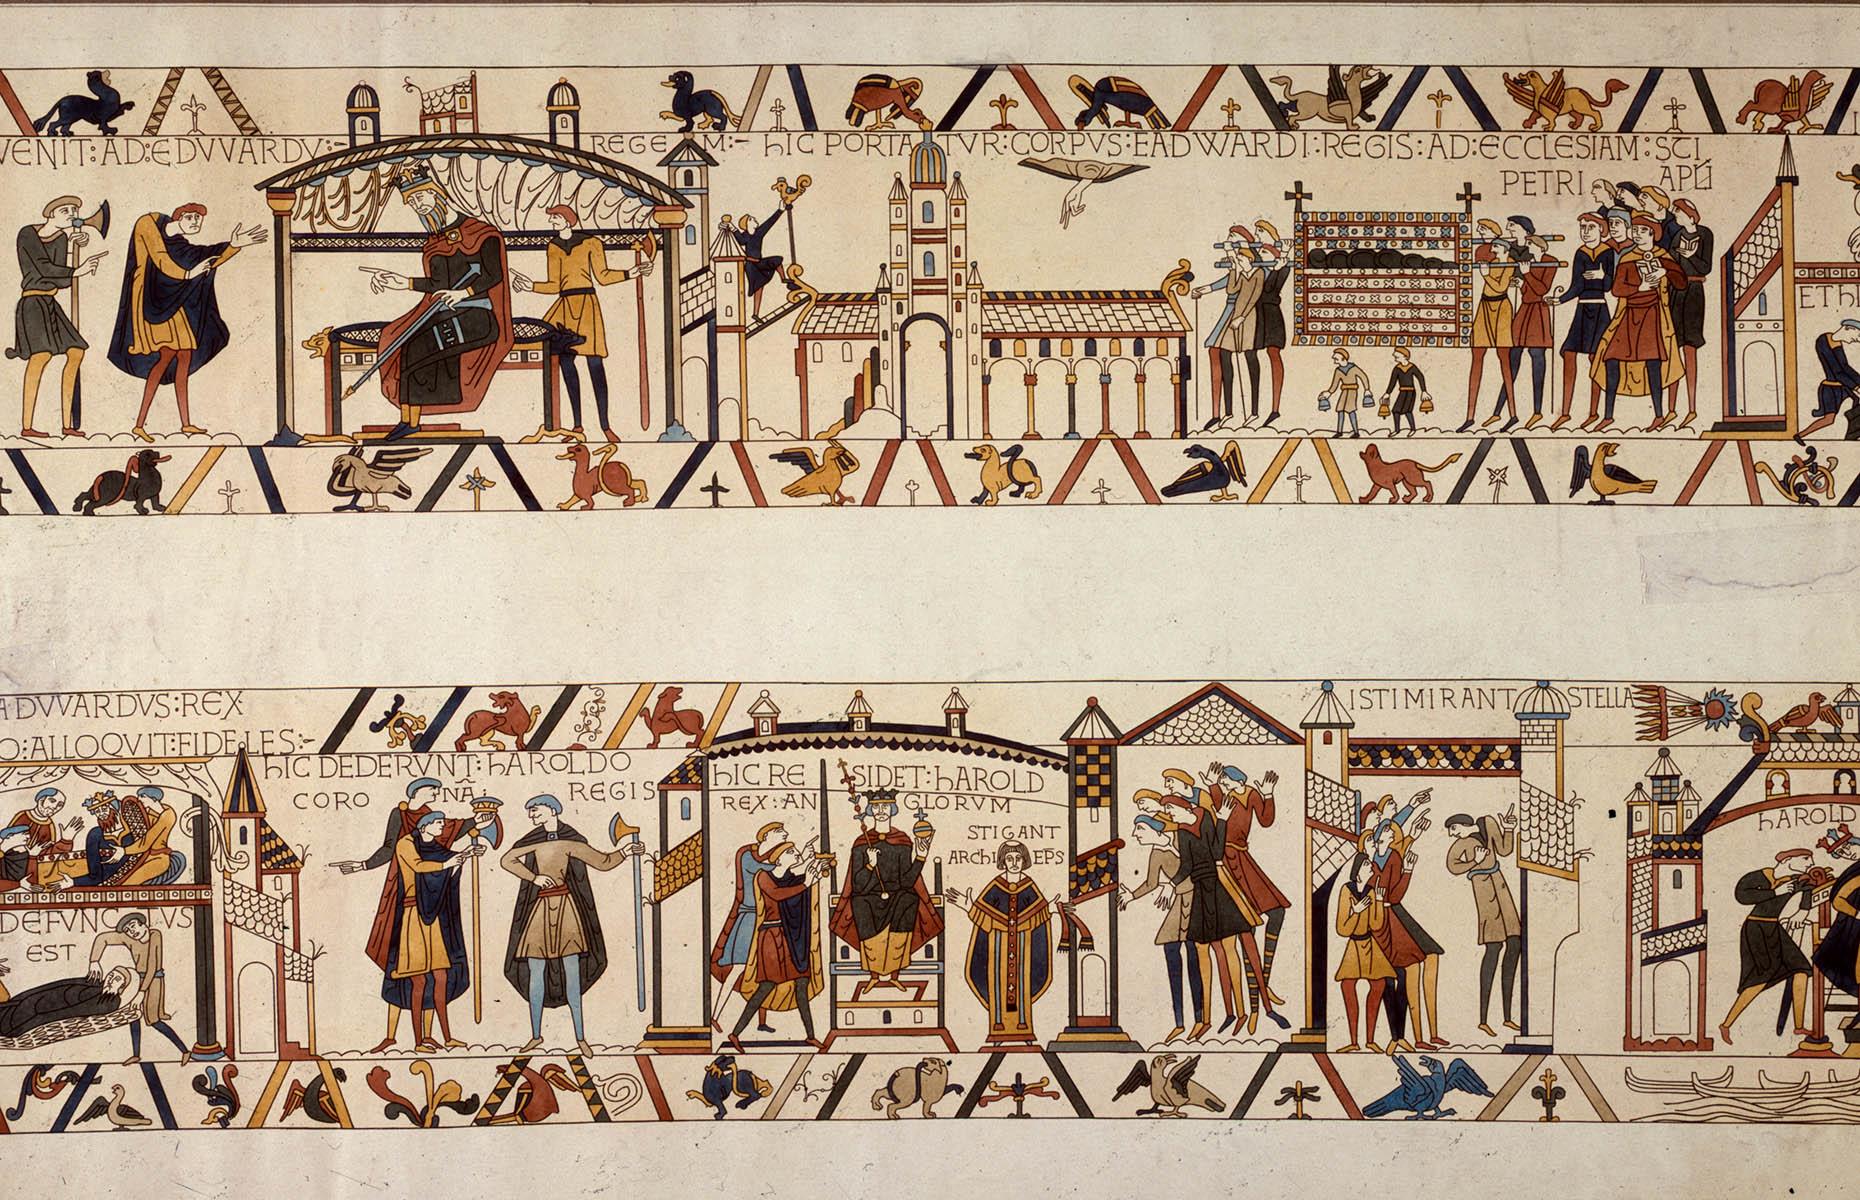 VENIT:AD:EDVVARDV:- REGEM:- hIC PORTATVR:CORPVS:EADWARDI:REGIS:AD:ECCLESIAM:SCI
PETRI APLI
ADVVARDVS:REX
O:ALLOQVIT:FIDELES:-
DEFVNCTVS
EST
hIC DEDERVNT:hAROLDO
CORONĀ: REGIS
hIC RESIDET:hAROLD
REX:ANGLORVM
STIGANT
ARChIEPS
ISTI MIRANT STELLA
hAROLD